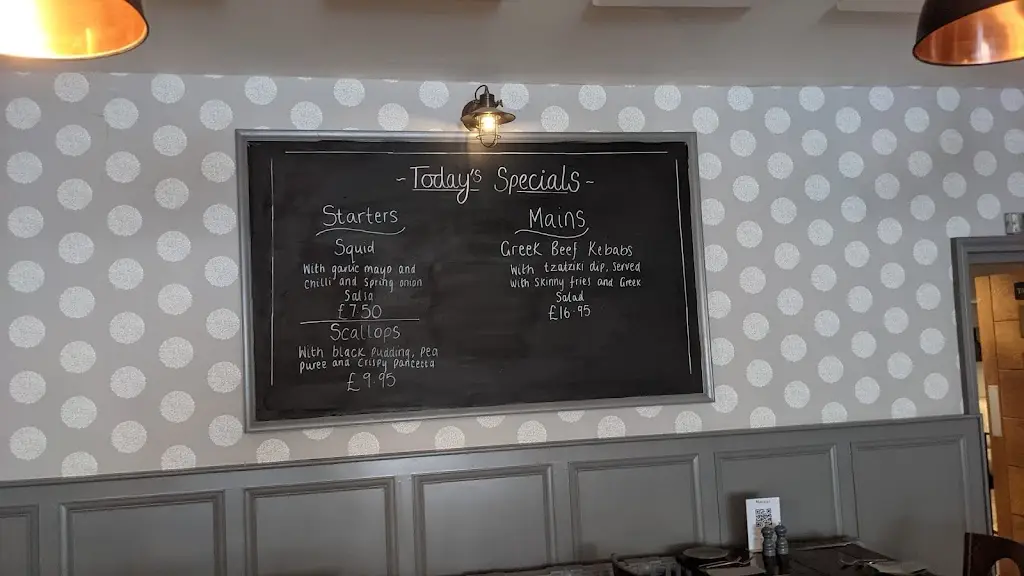 ~Today's Specials~
Starters
Squid
With garlic mayo and
chilli and spring onion
Salsa
£7.50
Scallops
With black pudding, pea
puree and crispy pancetta
£9.95
Mains
Greek Beef Kebabs
With tzatziki dip. Served
with skinny fries and Greek
Salad
£16.95